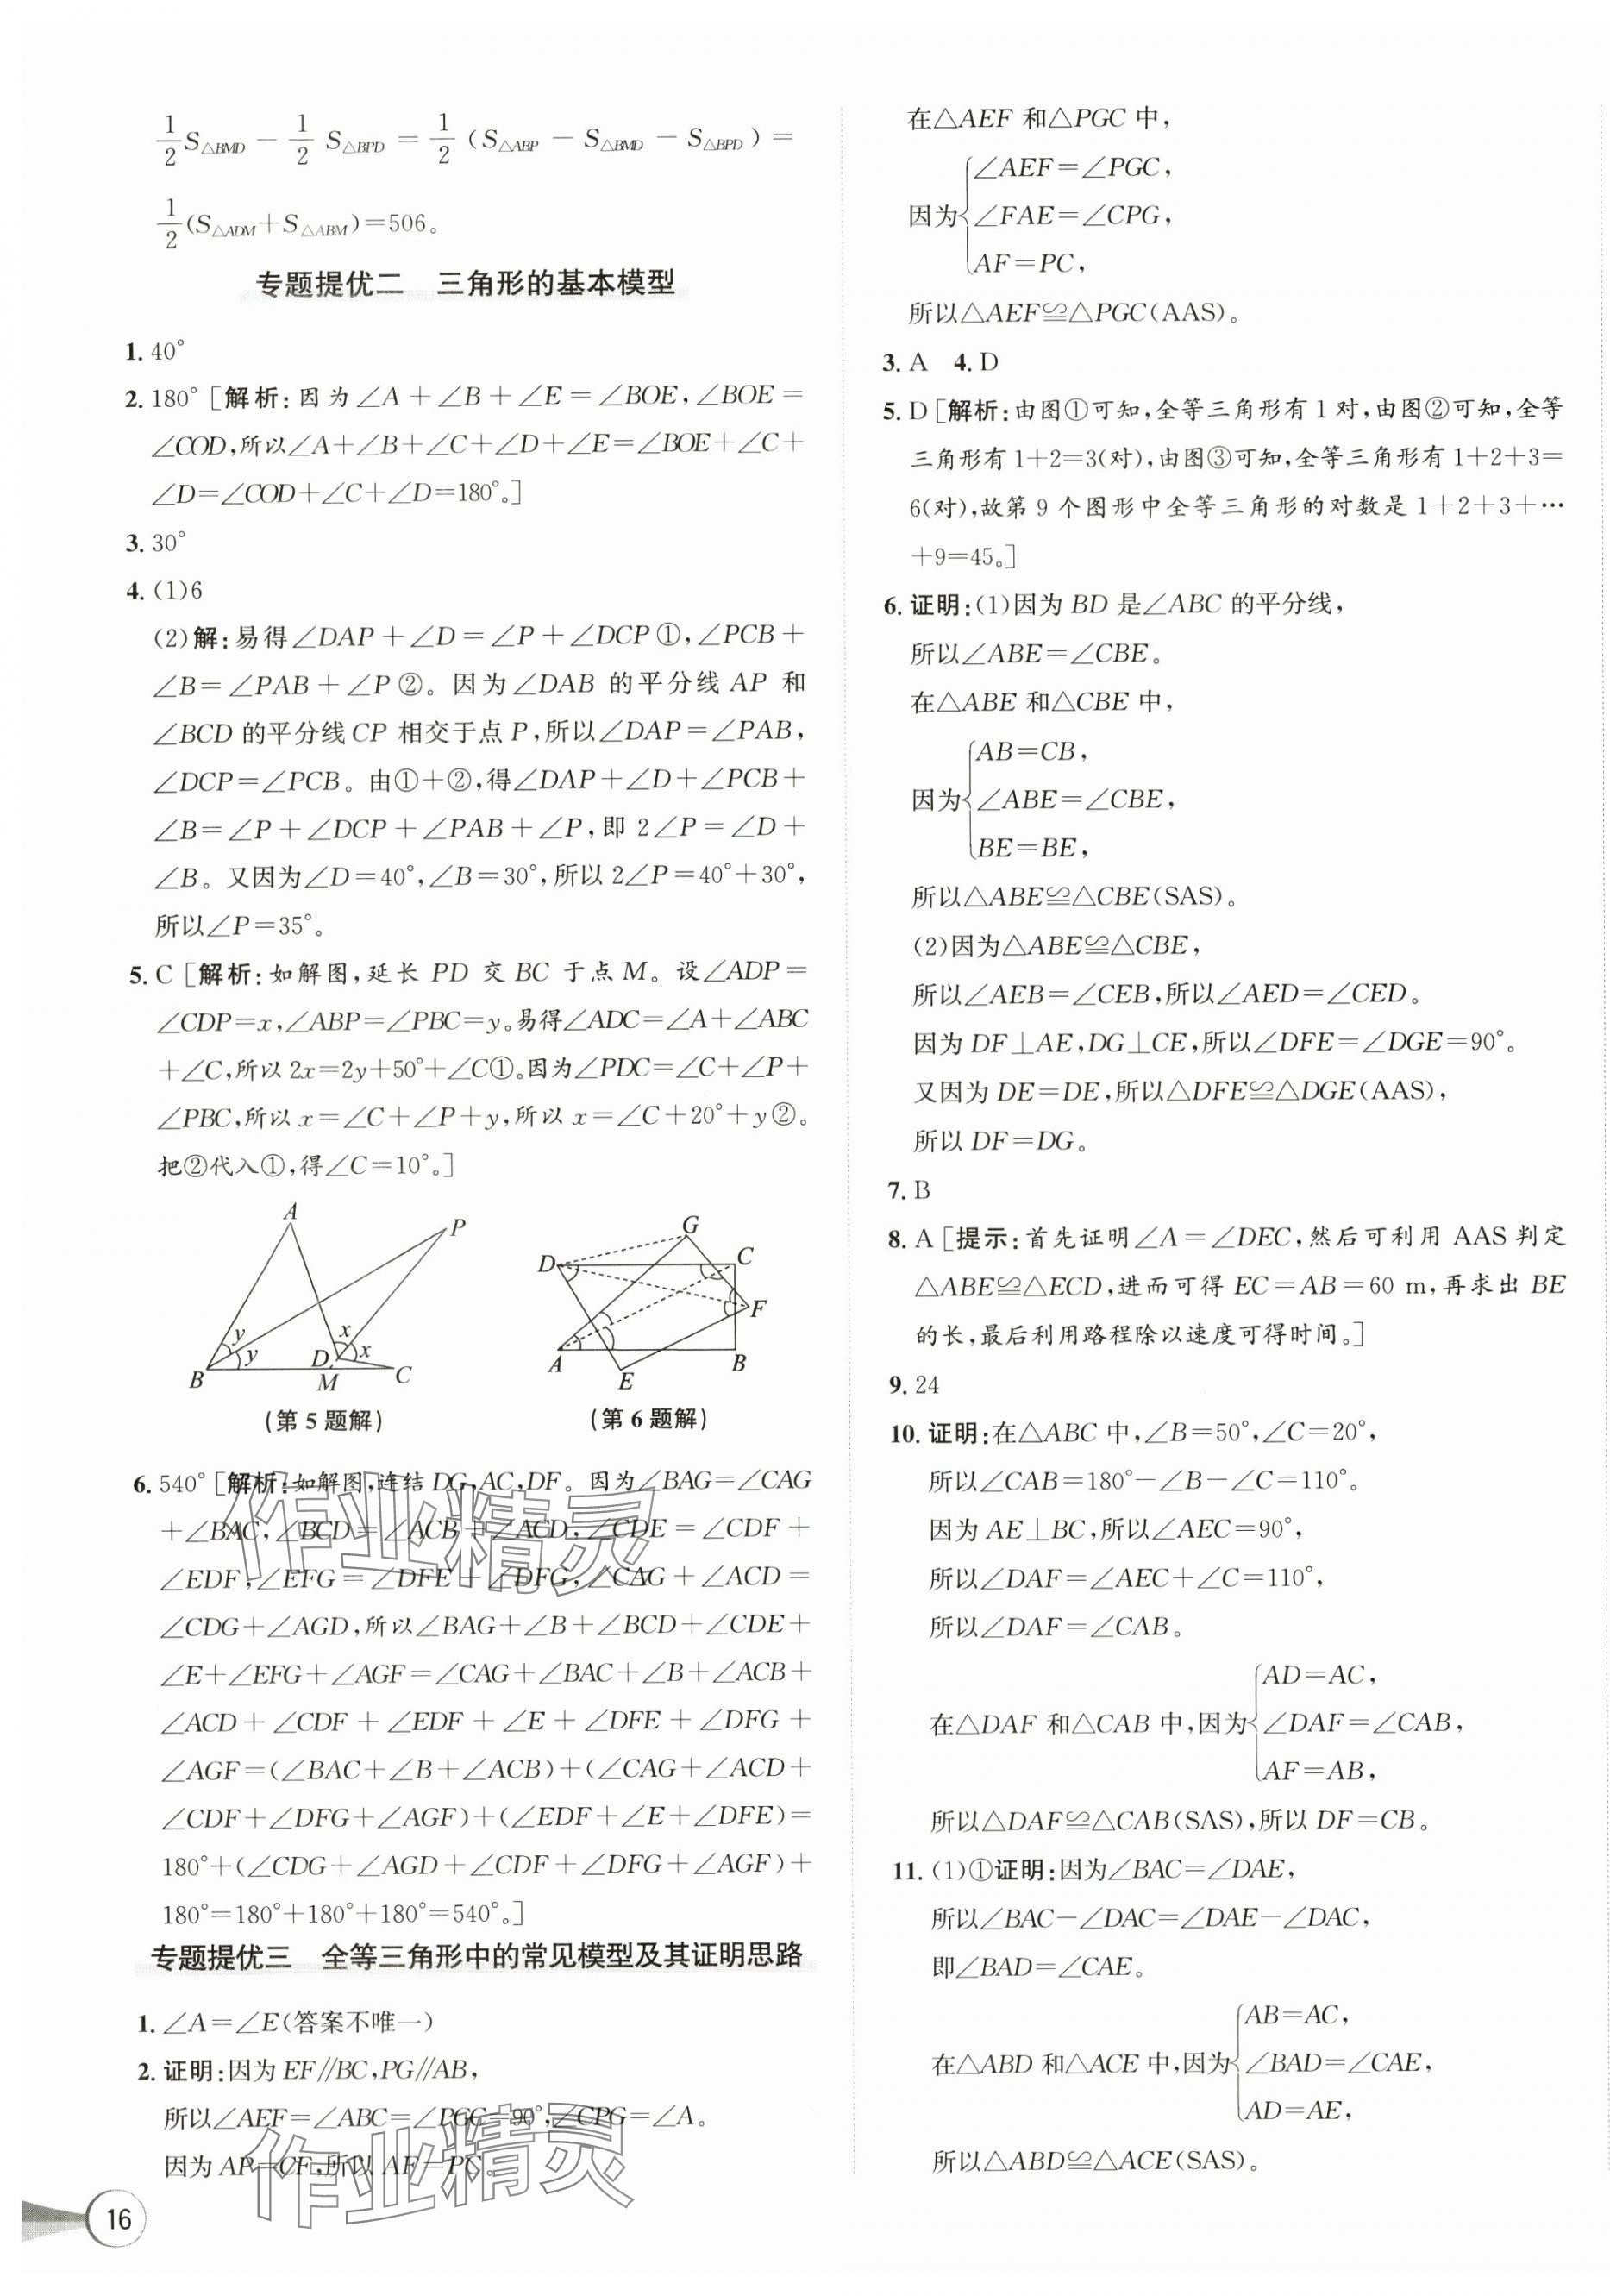 1/2 S△BMD − 1/2 S△BPD = 1/2 (S△ABP − S△BMD − S△BPD) =
1/2 (S△ADM+S△ABM)=506。
专题提优二　三角形的基本模型
1. 40°
2. 180° [解析:因为∠A+∠B+∠E=∠BOE,∠BOE=
∠COD,所以∠A+∠B+∠C+∠D+∠E=∠BOE+∠C+
∠D=∠COD+∠C+∠D=180°。]
3. 30°
4. (1)6
(2)解:易得∠DAP+∠D=∠P+∠DCP①,∠PCB+
∠B=∠PAB+∠P②。因为∠DAB的平分线AP和
∠BCD的平分线CP相交于点P,所以∠DAP=∠PAB,
∠DCP=∠PCB。由①+②,得∠DAP+∠D+∠PCB+
∠B=∠P+∠DCP+∠PAB+∠P,即2∠P=∠D+
∠B。又因为∠D=40°,∠B=30°,所以2∠P=40°+30°,
所以∠P=35°。
5. C [解析:如解图,延长PD交BC于点M。设∠ADP=
∠CDP=x,∠ABP=∠PBC=y。易得∠ADC=∠A+∠ABC
+∠C,所以2x=2y+50°+∠C①。因为∠PDC=∠C+∠P+
∠PBC,所以x=∠C+∠P+y,所以x=∠C+20°+y②。
把②代入①,得∠C=10°。]
A
P
B
y
y
D
x
x
M
C
(第5题解)
G
D
C
F
A
B
E
(第6题解)
6. 540° [解析:如解图,连结DG,AC,DF。因为∠BAG=∠CAG
+∠BAC,∠BCD=∠ACB+∠ACD,∠CDE=∠CDF+
∠EDF,∠EFG=∠DFE+∠DFG,∠CAG+∠ACD=
∠CDG+∠AGD,所以∠BAG+∠B+∠BCD+∠CDE+
∠E+∠EFG+∠AGF=∠CAG+∠BAC+∠B+∠ACB+
∠ACD+∠CDF+∠EDF+∠E+∠DFE+∠DFG+
∠AGF=(∠BAC+∠B+∠ACB)+(∠CAG+∠ACD+
∠CDF+∠DFG+∠AGF)+(∠EDF+∠E+∠DFE)=
180°+(∠CDG+∠AGD+∠CDF+∠DFG+∠AGF)+
180°=180°+180°+180°=540°。]
专题提优三　全等三角形中的常见模型及其证明思路
1. ∠A=∠E(答案不唯一)
2. 证明:因为EF∥BC,PG∥AB,
所以∠AEF=∠ABC=∠PGC=90°,∠CPG=∠A。
因为AP=CF,所以AF=PC。
作业精灵
作业精灵
16
在△AEF和△PGC中,
∠AEF=∠PGC,
因为 ∠FAE=∠CPG,
AF=PC,
所以△AEF≌△PGC(AAS)。
3. A　4. D
5. D [解析:由图①可知,全等三角形有1对,由图②可知,全等
三角形有1+2=3(对),由图③可知,全等三角形有1+2+3=
6(对),故第9个图形中全等三角形的对数是1+2+3+…
+9=45。]
6. 证明:(1)因为BD是∠ABC的平分线,
所以∠ABE=∠CBE。
在△ABE和△CBE中,
AB=CB,
因为 ∠ABE=∠CBE,
BE=BE,
所以△ABE≌△CBE(SAS)。
(2)因为△ABE≌△CBE,
所以∠AEB=∠CEB,所以∠AED=∠CED。
因为DF⊥AE,DG⊥CE,所以∠DFE=∠DGE=90°。
又因为DE=DE,所以△DFE≌△DGE(AAS),
所以DF=DG。
7. B
8. A [提示:首先证明∠A=∠DEC,然后可利用AAS判定
△ABE≌△ECD,进而可得EC=AB=60 m,再求出BE
的长,最后利用路程除以速度可得时间。]
9. 24
10. 证明:在△ABC中,∠B=50°,∠C=20°,
所以∠CAB=180°−∠B−∠C=110°。
因为AE⊥BC,所以∠AEC=90°,
所以∠DAF=∠AEC+∠C=110°,
所以∠DAF=∠CAB。
AD=AC,
在△DAF和△CAB中,因为 ∠DAF=∠CAB,
AF=AB,
所以△DAF≌△CAB(SAS),所以DF=CB。
11. (1)①证明:因为∠BAC=∠DAE,
所以∠BAC−∠DAC=∠DAE−∠DAC,
即∠BAD=∠CAE。
AB=AC,
在△ABD和△ACE中,因为 ∠BAD=∠CAE,
AD=AE,
所以△ABD≌△ACE(SAS)。